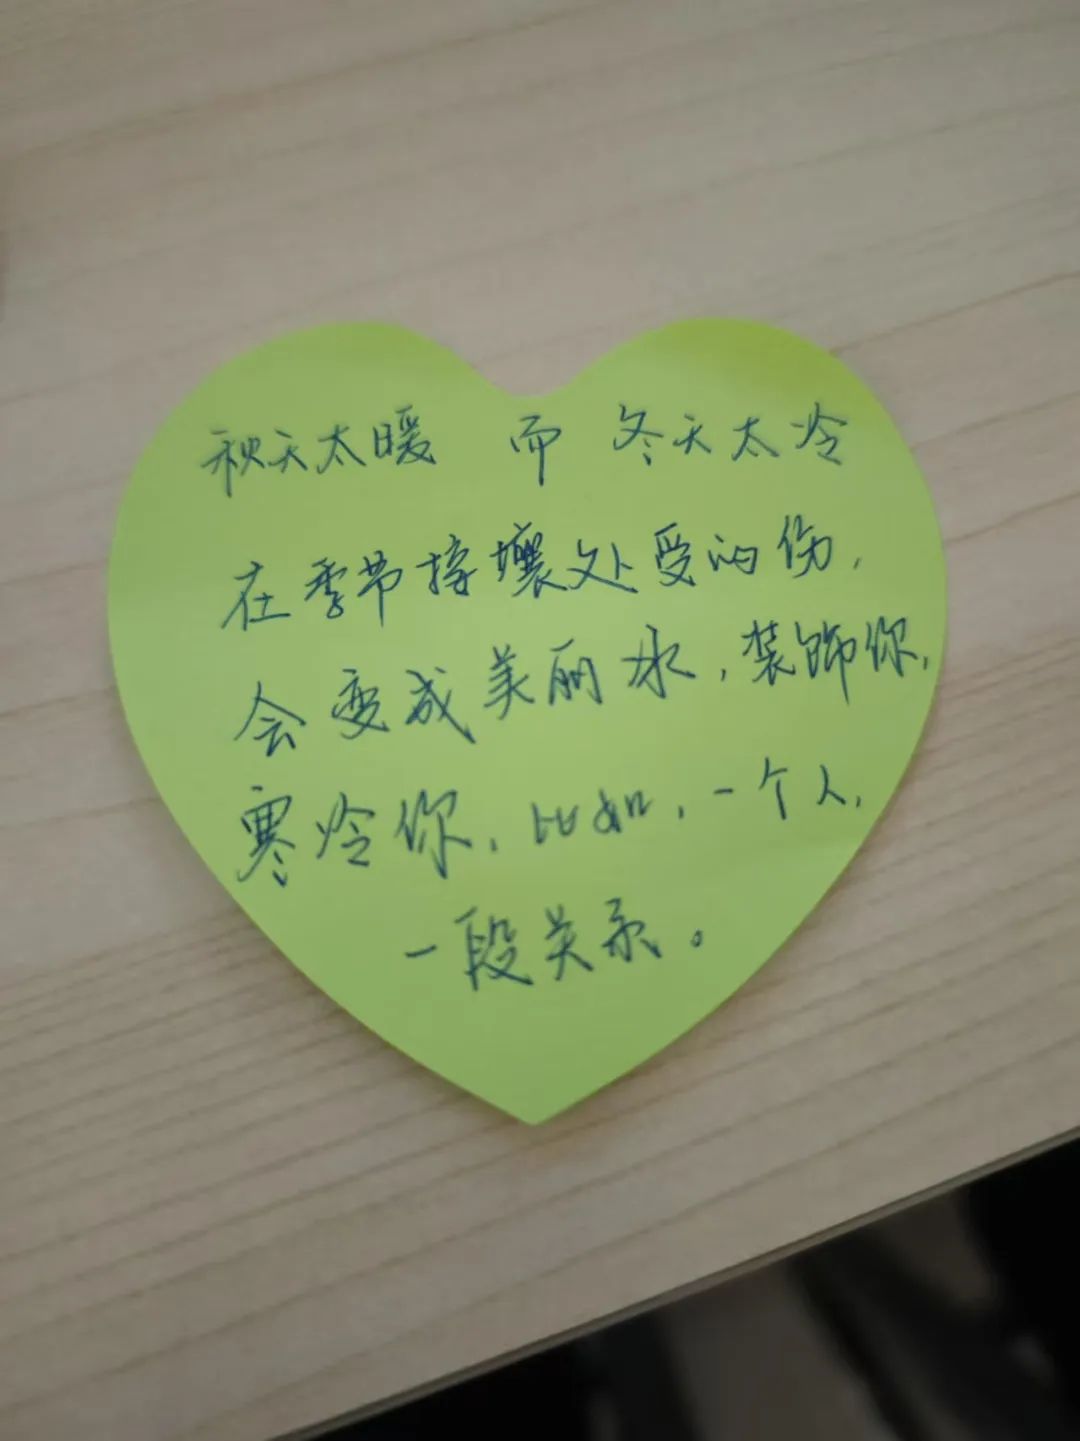 秋天太暖 而 冬天太冷
在季节接壤处受的伤,
会变成美丽冰,装饰你,
寒冷你,比如,一个人,
一段关系。